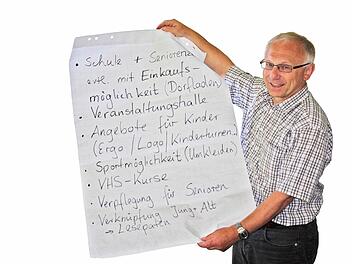 • Schule + Senioren
evtl. mit Einkaufs-
möglichkeit (Dorfladen)
• Veranstaltungshalle
• Angebote für Kinder
(Ergo/Logo/Kinderturnen..
• Sportmöglichkeit (Umkleiden)
• VHS-Kurse
• Verpflegung für Senioren
• Verknüpfung Jung + Alt
→ Lesepaten